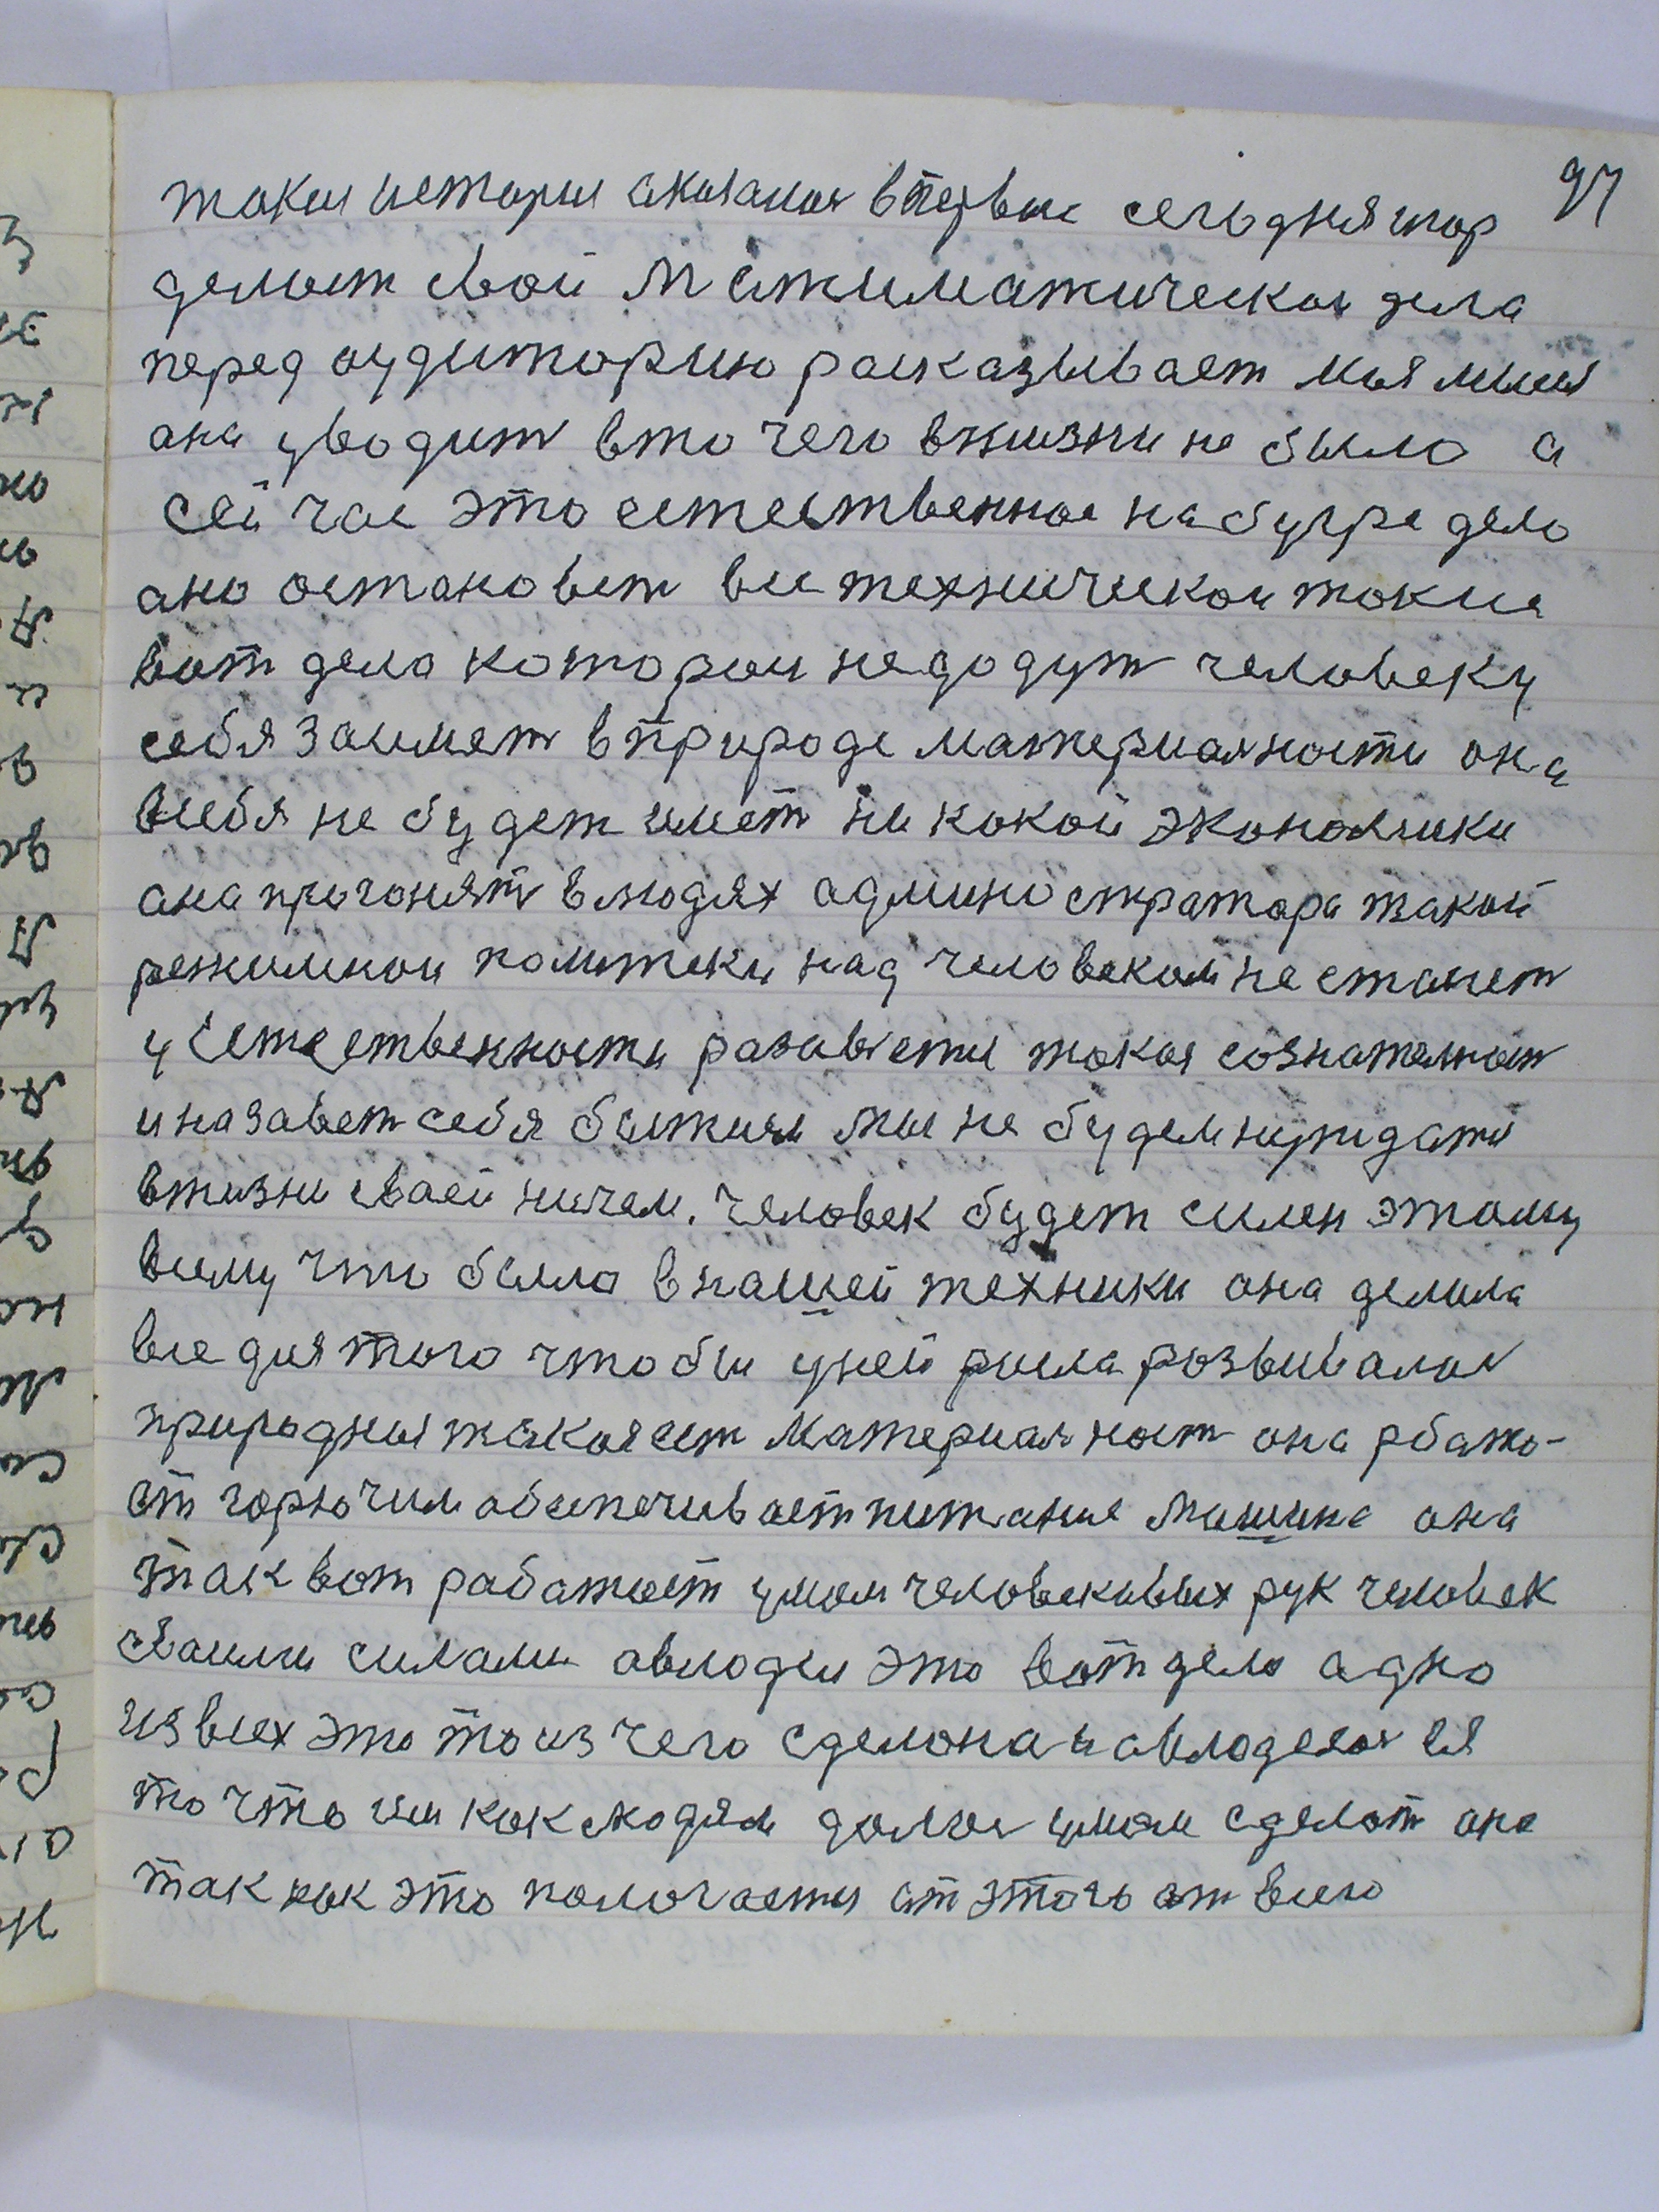 97
такая история сказаная впервые сегодня шар
делает свои математическаи дела
перед аудиторию расказывает мая мысл
она уводит вто чего вжизни не было а
сей час это естественное на бугре дело
ано остановет все техническаи такие
вот дела которыи недодут человеку
себя займет вприроде материалности она
всебя не будет имет ни какой экономики
ана прогонят влюдях админостратара такой
режимнои политеки над человеком не станет
у Естественности разавется такая сознателност
и назавет себя бытием мы не будем нуждатся
вжизни сваей ничем. человек будет силен этому
всему что было внашей техники она делила
все для того что бы уней рысла розвивалас
природныя такая ест материалност она рбата-
ет горючим абеспечивает питание машина она
так вот работает умом человекивых рук человек
сваими силами авлодел это вот дело адно
извсех это то из чего сделона и авлоделая ея
то что им как людям далос умом сделат оно
так как это палочается от этого от всего